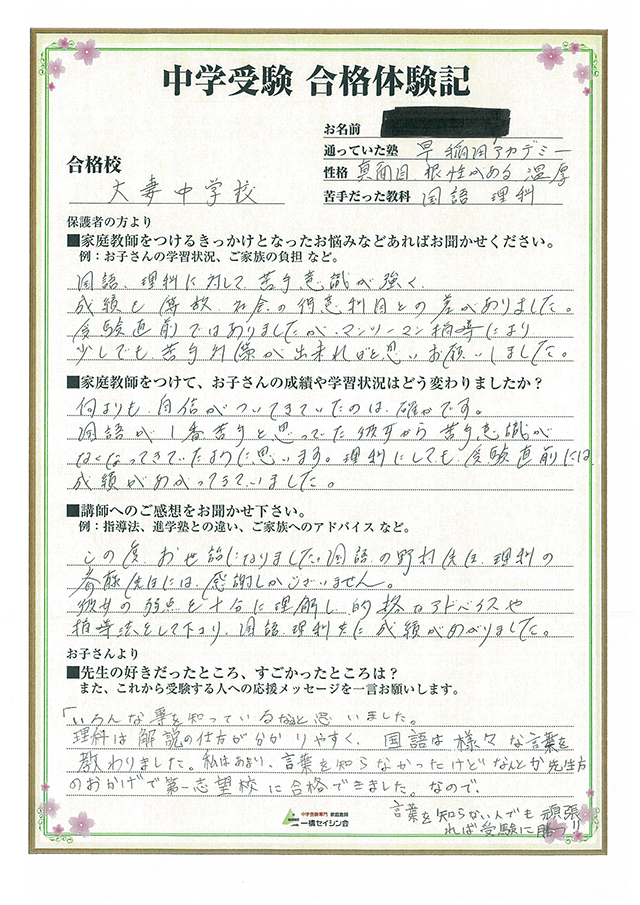 中学受験 合格体験記
お名前
通っていた塾 早稲田アカデミー
合格校
性格 真面目 根性がある 温厚
大妻中学校
苦手だった教科 国語 理科
保護者の方より
■家庭教師をつけるきっかけとなったお悩みなどあればお聞かせください。
例：お子さんの学習状況、ご家族の負担 など。
国語、理科に対して苦手意識が強く、
成績も算数、社会の得意科目との差がありました。
受験直前ではありましたが、マンツーマン指導により
少しでも苦手対策が出来ればと思いお願いしました。
■家庭教師をつけて、お子さんの成績や学習状況はどう変わりましたか？
何よりも、自信がついてきていたのは、確かです。
国語が1番苦手と思っていた彼女から苦手意識が
なくなってきていたように思います。理科にしても、受験直前には、
成績があがってきていました。
■講師へのご感想をお聞かせ下さい。
例：指導法、進学塾との違い、ご家族へのアドバイス など。
この度、お世話になりました。国語の野村先生、理科の
斉藤先生には、感謝しかございません。
彼女の弱点を十分に理解し、的格なアドバイスや
指導法をして下さり、国語、理科共に成績があがりました。
お子さんより
■先生の好きだったところ、すごかったところは？
また、これから受験する人への応援メッセージを一言お願いします。
「いろんな事を知っているなぁと思いました。
理科は解説の仕方が分かりやすく、国語は様々な言葉を
教わりました。私はあまり、言葉を知らなかったけどなんとか先生方
のおかげで第一志望校に合格できました。なので、
言葉を知らない人でも頑張
れば受験に勝つ!!
中学受験専門 家庭教師
一橋セイシン会